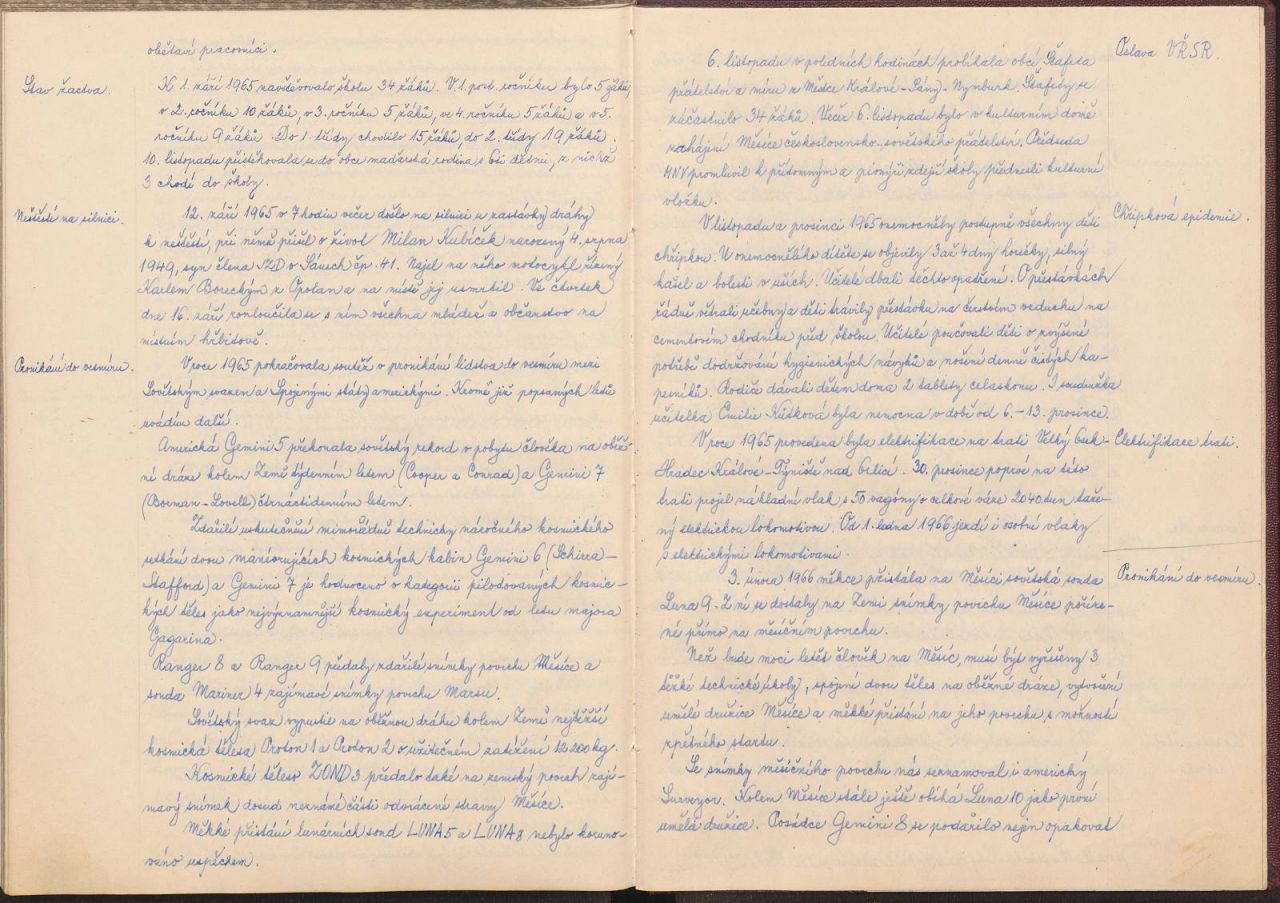 obětaví pracovníci.
Stav žactva.
K 1. září 1965 navštěvovalo školu 34 žáků. V 1. post. ročníku bylo 5 žáků,
v 2. ročníku 10 žáků, v 3. ročníku 5 žáků, ve 4. ročníku 5 žáků a v 5.
ročníku 9 žáků. Do 1. třídy chodilo 15 žáků, do 2. třídy 19 žáků.
10. listopadu přistěhovala se do obce maďarská rodina s 6ti dětmi, z nichž
3 chodí do školy.
Neštěstí na silnici.
12. září 1965 v 7 hodin večer došlo na silnici u zastávky dráhy
k neštěstí, při němž přišel o život Milan Kubíček narozený 4. srpna
1949, syn člena JZD v Sánech čp. 41. Najel na něho motocykl řízený
Karlem Boreckým z Opolan a na místě jej usmrtil. Ve čtvrtek
dne 16. září rozloučila se s ním všechna mládež a občanstvo na
místním hřbitově.
Pronikání do vesmíru.
V roce 1965 pokračovala soutěž v pronikání lidstva do vesmíru mezi
Sovětským svazem a Spojenými státy americkými. Kromě již popsaných letů
uvádím další.
Americká Gemini 5 překonala sovětský rekord v pobytu člověka na oběž-
né dráze kolem Země týdenním letem (Cooper a Conrad) a Gemini 7
(Borman - Lovell) čtrnáctidenním letem.
Zdařilé uskutečnění mimořádně technicky náročného kosmického
setkání dvou manévrujících kosmických kabin Gemini 6 (Schirra -
Stafford) a Gemini 7 je hodnoceno v kategorii pilotovaných kosmic-
kých těles jako nejvýznamnější kosmický experiment od letu majora
Gagarina.
Ranger 8 a Ranger 9 předaly zdařilé snímky povrchu Měsíce a
sonda Mariner 4 zajímavé snímky povrchu Marsu.
Sovětský svaz vypustil na oběžnou dráhu kolem Země nejtěžší
kosmická tělesa Proton 1 a Proton 2 o užitečném zatížení 12 200 kg.
Kosmické těleso ZOND 3 předalo také na zemský povrch zají-
mavý snímek dosud neznámé části odvrácené strany Měsíce.
Měkké přistání lunárních sond LUNA 5 a LUNA 8 nebylo koruno-
váno úspěchem.
Oslava VŘSR.
6. listopadu v poledních hodinách probíhala obcí Štafeta
přátelství a míru z Městce Králové - Sány - Nymburk. Štafety se
zúčastnilo 34 žáků. Večer 6. listopadu bylo v kulturním domě
zahájení Měsíce československo-sovětského přátelství. Předseda
MNV promluvil k přítomným a pionýři zdejší školy přednesli kulturní
vložku.
Chřipková epidemie.
V listopadu a prosinci 1965 onemocněly postupně všechny děti
chřipkou. U onemocnělého dítěte se objevily 3 až 4 dny horečky, silný
kašel a bolesti v uších. Učitelé dbali těchto opatření. O přestávkách
řádně větrali učebny a děti trávily přestávku na čerstvém vzduchu na
cementovém chodníku před školou. Učitelé poučovali děti o zvýšené
potřebě dodržování hygienických návyků a nošení denně čistých ka-
pesníků. Rodiče dávali dětem doma 2 tablety celaskonu. I soudružka
učitelka Emilie Kůtková byla nemocna v době od 6. - 13. prosince.
Elektrifikace trati.
V roce 1965 provedena byla elektrifikace na trati Velký Osek -
Hradec Králové - Týniště nad Orlicí. 30. prosince poprvé na této
trati projel nákladní vlak s 50 vagóny o celkové váze 2040 tun taže-
ný elektrickou lokomotivou. Od 1. ledna 1966 jezdí i osobní vlaky
s elektrickými lokomotivami.
Pronikání do vesmíru.
3. února 1966 měkce přistála na Měsíci sovětská sonda
Luna 9. Z ní se dostaly na Zemi snímky povrchu Měsíce poříze-
né přímo na měsíčním povrchu.
Než bude moci letět člověk na Měsíc, musí být vyřešeny 3
těžké technické úkoly, spojení dvou těles na oběžné dráze, vytvoření
umělé družice Měsíce a měkké přistání na jeho povrchu s možností
zpětného startu.
Se snímky měsíčního povrchu nás seznamoval i americký
Surveyor. Kolem Měsíce stále ještě obíhá Luna 10 jako první
umělá družice. Posádce Gemini 8 se podařilo nejen opakovat